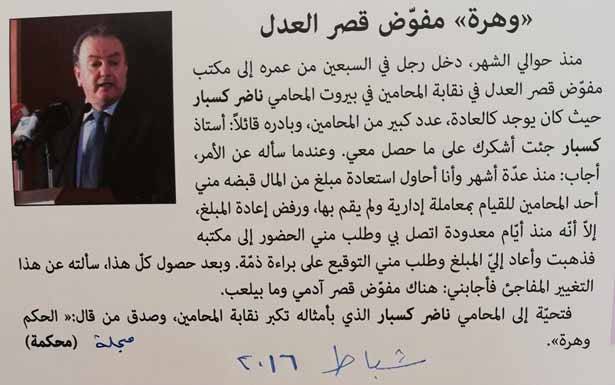 «وهرة» مفوّض قصر العدل
منذ حوالي الشهر، دخل رجل في السبعين من عمره إلى مكتب
مفوّض قصر العدل في نقابة المحامين في بيروت المحامي ناضر كسبار
حيث كان يوجد كالعادة، عدد كبير من المحامين، وبادره قائلاً: أستاذ
كسبار جئت أشكرك على ما حصل معي. وعندما سأله عن الأمر،
أجاب: منذ عدّة أشهر وأنا أحاول استعادة مبلغ من المال قبضه مني
أحد المحامين للقيام بمعاملة إدارية ولم يقم بها، ورفض إعادة المبلغ،
إلاّ أنّه منذ أيّام معدودة اتصل بي وطلب مني الحضور إلى مكتبه
فذهبت وأعاد إليّ المبلغ وطلب مني التوقيع على براءة ذمّة. وبعد حصول كلّ هذا، سألته عن هذا
التغيير المفاجئ فأجابني: هناك مفوّض قصر آدمي وما بيلعب.
فتحيّة إلى المحامي ناضر كسبار الذي بأمثاله تكبر نقابة المحامين، وصدق من قال:« الحكم
وهرة». مجلة (محكمة)
شباط ٢٠١٦